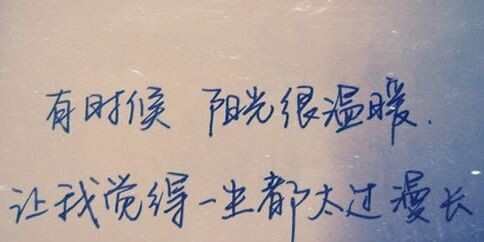 有时候 阳光很温暖.
让我觉得一生都太过漫长